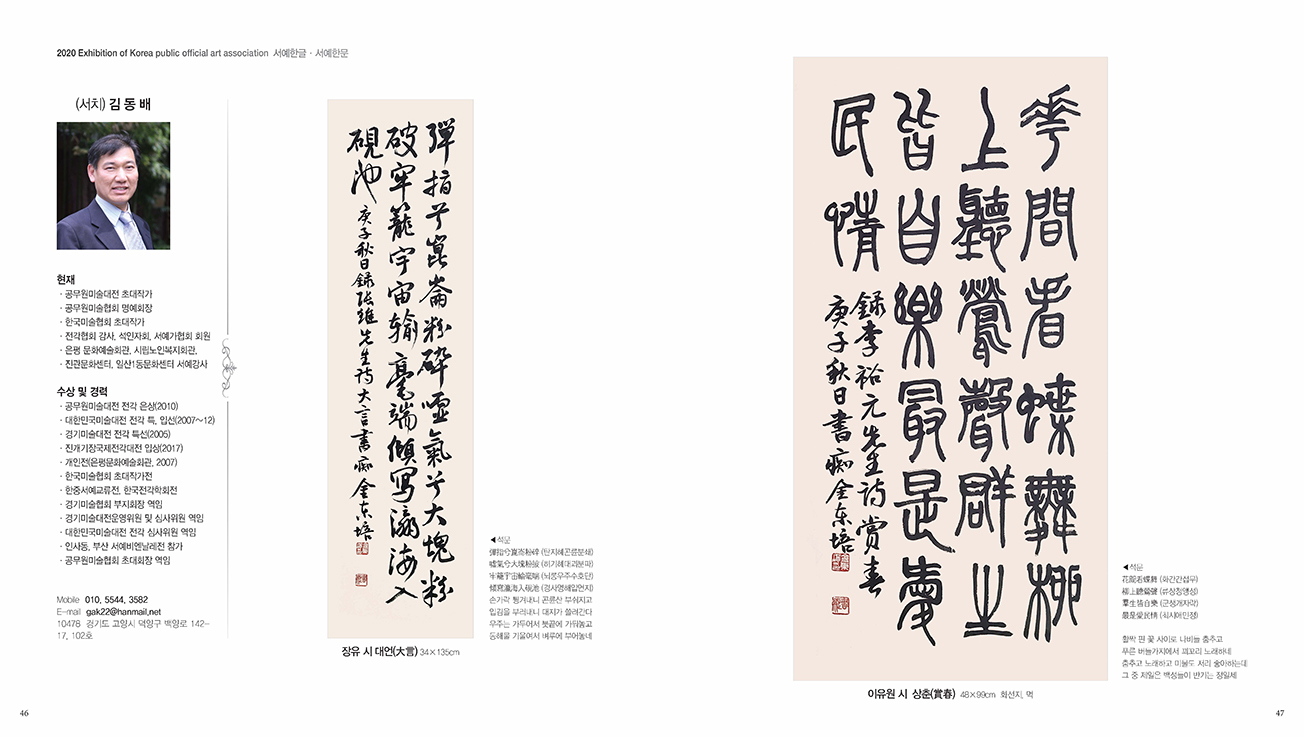 2020 Exhibition of Korea public official art association 서예한글 · 서예한문
(서치) 김 동 배
현재
· 공무원미술대전 초대작가
· 공무원미술협회 명예회장
· 한국미술협회 초대작가
· 전각협회 감사, 석인자회, 서예가협회 회원
· 은평 문화예술회관, 시립노인복지회관,
· 진관문화센터, 일산1동문화센터 서예강사
수상 및 경력
· 공무원미술대전 전각 은상(2010)
· 대한민국미술대전 전각 특, 입선(2007~12)
· 경기미술대전 전각 특선(2005)
· 진개기장국제전각대전 입상(2017)
· 개인전(은평문화예술회관, 2007)
· 한국미술협회 초대작가전
· 한중서예교류전, 한국전각학회전
· 경기미술협회 부지회장 역임
· 경기미술대전운영위원 및 심사위원 역임
· 대한민국미술대전 전각 심사위원 역임
· 인사동, 부산 서예비엔날레전 참가
· 공무원미술협회 초대회장 역임
Mobile 010, 5544, 3582
E-mail gak22@hanmail,net
10478 경기도 고양시 덕양구 백양로 142-
17, 102호
46
彈指兮崑崙粉碎噓氣兮大塊粉
破牢籠宇宙輸毫端傾寫瀛海入
硯池 庚子秋日錄張維先生詩大言書痴金東培
장유 시 대언(大言) 34×135cm
◀석문
彈指兮崑崙粉碎 (탄지혜곤륜분쇄)
噓氣兮大塊紛披 (허기혜대괴분피)
牢籠宇宙輸毫端 (뇌롱우주수호단)
傾寫瀛海入硯池 (경사영해입연지)
손가락 튕겨내니 곤륜산 부숴지고
입김을 부러내니 대지가 쓸려간다
우주는 가두어서 붓끝에 가둬놓고
동해를 기울여서 벼루에 부어놓네
花間看蝶舞柳
上聽鶯聲群生
皆自樂最是愛
民情 錄李裕元先生詩賞春
庚子秋日書痴金东培
이유원 시 상춘(賞春) 48×99cm 화선지, 먹
◀석문
花間看蝶舞 (화간간접무)
柳上聽鶯聲 (류상청앵성)
羣生皆自樂 (군생개자락)
最是愛民情 (최시애민정)
활짝 핀 꽃 사이로 나비들 춤추고
푸른 버들가지에서 꾀꼬리 노래하네
춤추고 노래하고 미물도 저리 좋아하는데
그 중 제일은 백성들이 반기는 정일세
47